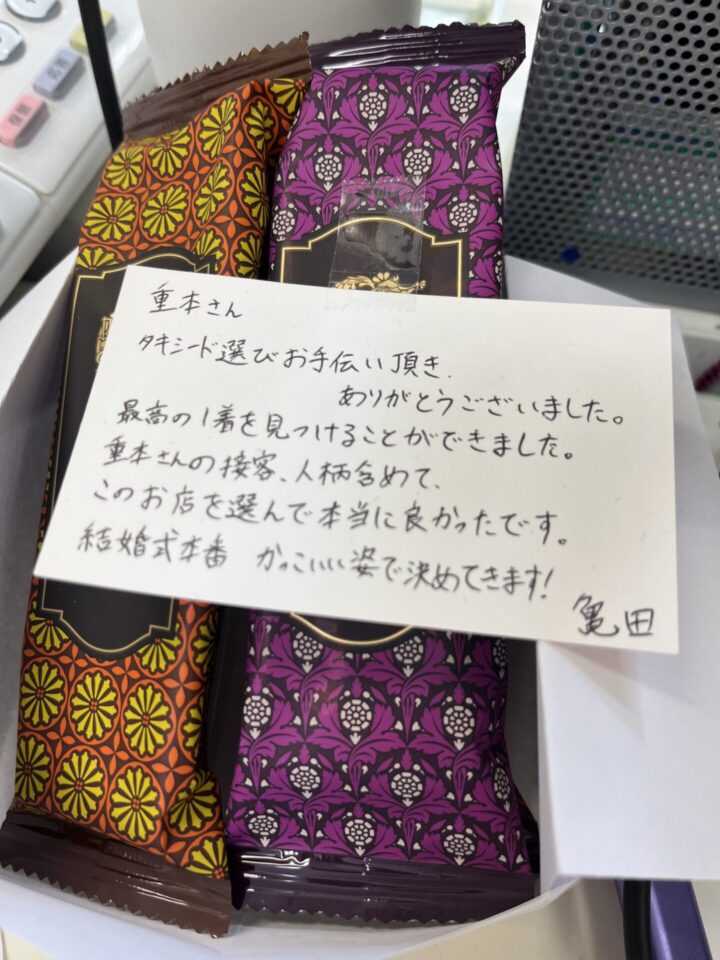 重本さん
タキシード選びお手伝い頂き、
ありがとうございました。
最高の1着を見つけることができました。
重本さんの接客、人柄含めて、
このお店を選んで本当に良かったです。
結婚式本番 かっこいい姿で決めてきます!
亀田